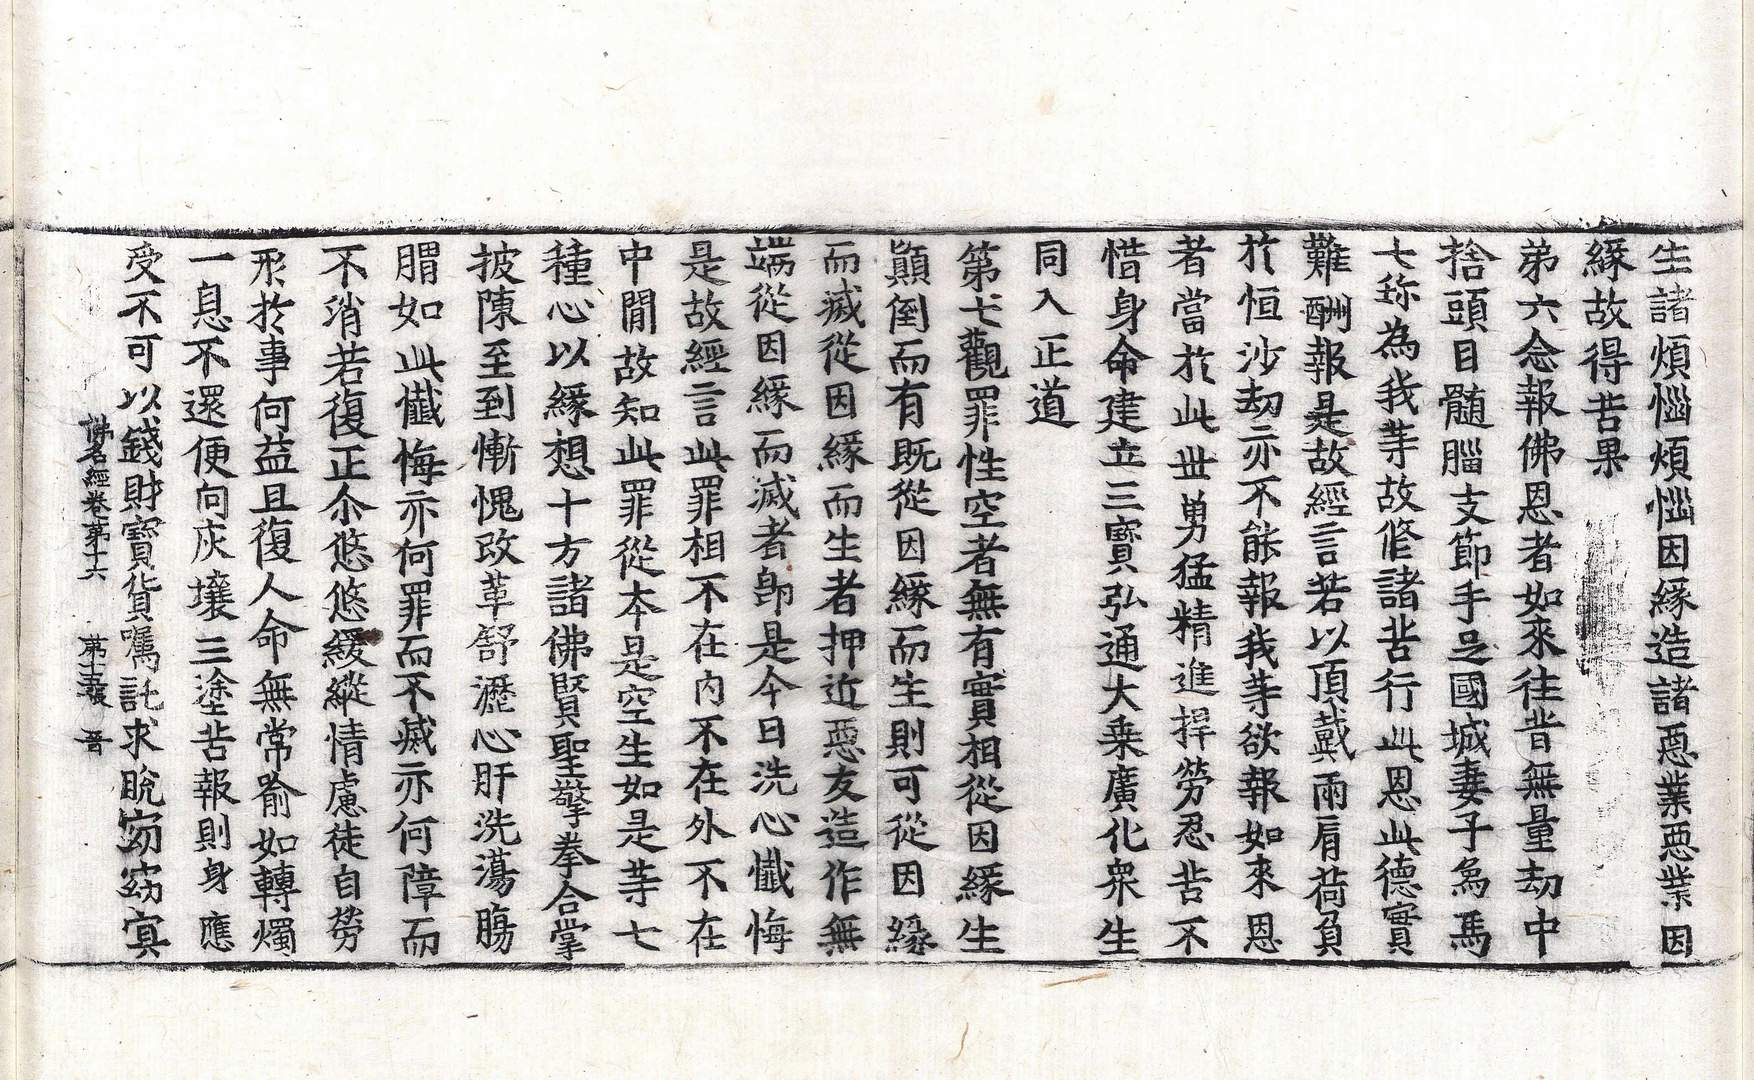 生諸煩惱煩惱因緣造諸惡業惡業因
緣故得苦果
第六念報佛恩者如來往昔無量劫中
捨頭目髓腦支節手足國城妻子象馬
七珎為我等故修諸苦行此恩此德實
難酬報是故經言若以頂戴兩肩荷負
於恒沙劫亦不能報我等欲報如來恩
者當於此世勇猛精進捍勞忍苦不
惜身命建立三寶弘通大乘廣化衆生
同入正道
第七觀罪性空者無有實相從因緣生
顚倒而有旣從因緣而生則可從因緣
而滅從因緣而生者押近惡友造作無
端從因緣而滅者即是今日洗心懺悔
是故經言此罪相不在內不在外不在
中閒故知此罪從本是空生如是等七
種心以緣想十方諸佛賢聖擎拳合掌
披陳至到慚愧改革舒瀝心肝洗蕩腸
𦝩如此懺悔亦何罪而不滅亦何障而
不消若復正尒悠悠緩縱情慮徒自勞
形於事何益且復人命無常喻如轉燭
一息不還便向灰壤三塗苦報則身應
受不可以錢財寶貨囑託求脫窈窈冥
佛名經卷第十六　第十五張　晉